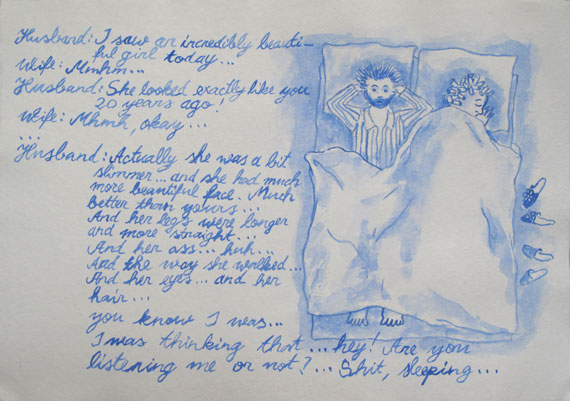 Husband: I saw an incredibly beauti-
ful girl today...
Wife: Mmhm...
Husband: She looked exactly like you
20 years ago!
Wife: Mhmh, okay...
...
Husband: Actually she was a bit
slimmer... and she had much
more beautiful face. Much
better than yours...
And her legs were longer
and more straight...
And her ass... huh...
And the way she walked...
And her eyes... and her
hair...
you know I was...
I was thinking that... hey! Are you
listening me or not?... Shit, sleeping...